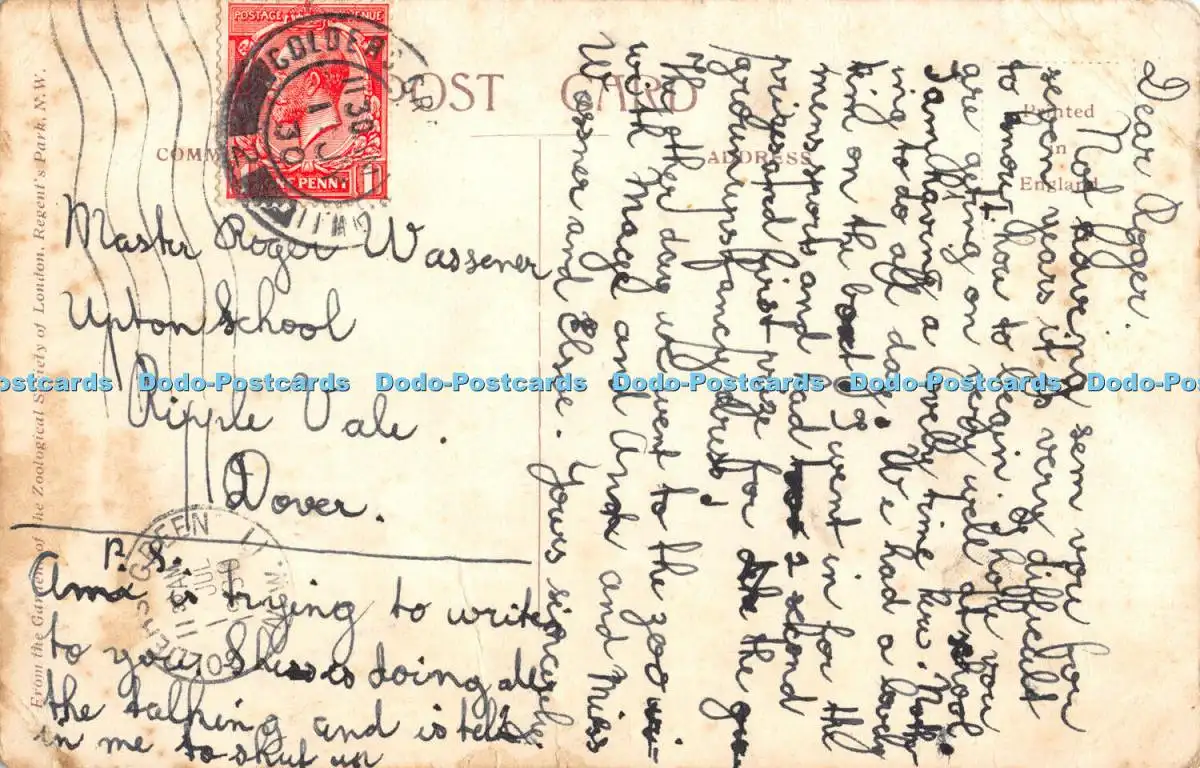 POSTAGE REVENUE
ONE PENNY
GOLDERS GR.
11 30
1 JUL
30
N.W.11
POST CARD
COMM
ADDRESS
Printed
in
England
From the Gardens of the Zoological Society of London, Regent's Park, N.W.
Master Roger Wassener
Upton School
Ripple Vale.
Dover.
P.S.
Ama is trying to write
to you. She is doing all
the talking and is tell
in me to shut up
GOLDERS GREEN
N.W.11
Dear Roger.
Not haveing sem you for
seven years it is very difficult
to know how to begin. I hope you
are geting on very well at skool
I am having a lovely time here. Noth
ing to do all day. We had a lovely
time on the boat I went in for the
mens sports and had 2 second
prises and first prize for the
grownups fancy dress.
The other day we went to the zoo wi-
with Madge and and Miss
Wossner and Elsie. Yours sincerele
Dodo-Postcards Dodo-Postcards Dodo-Postcards Dodo-Postcards Dodo-Postcards Dodo-Postcards